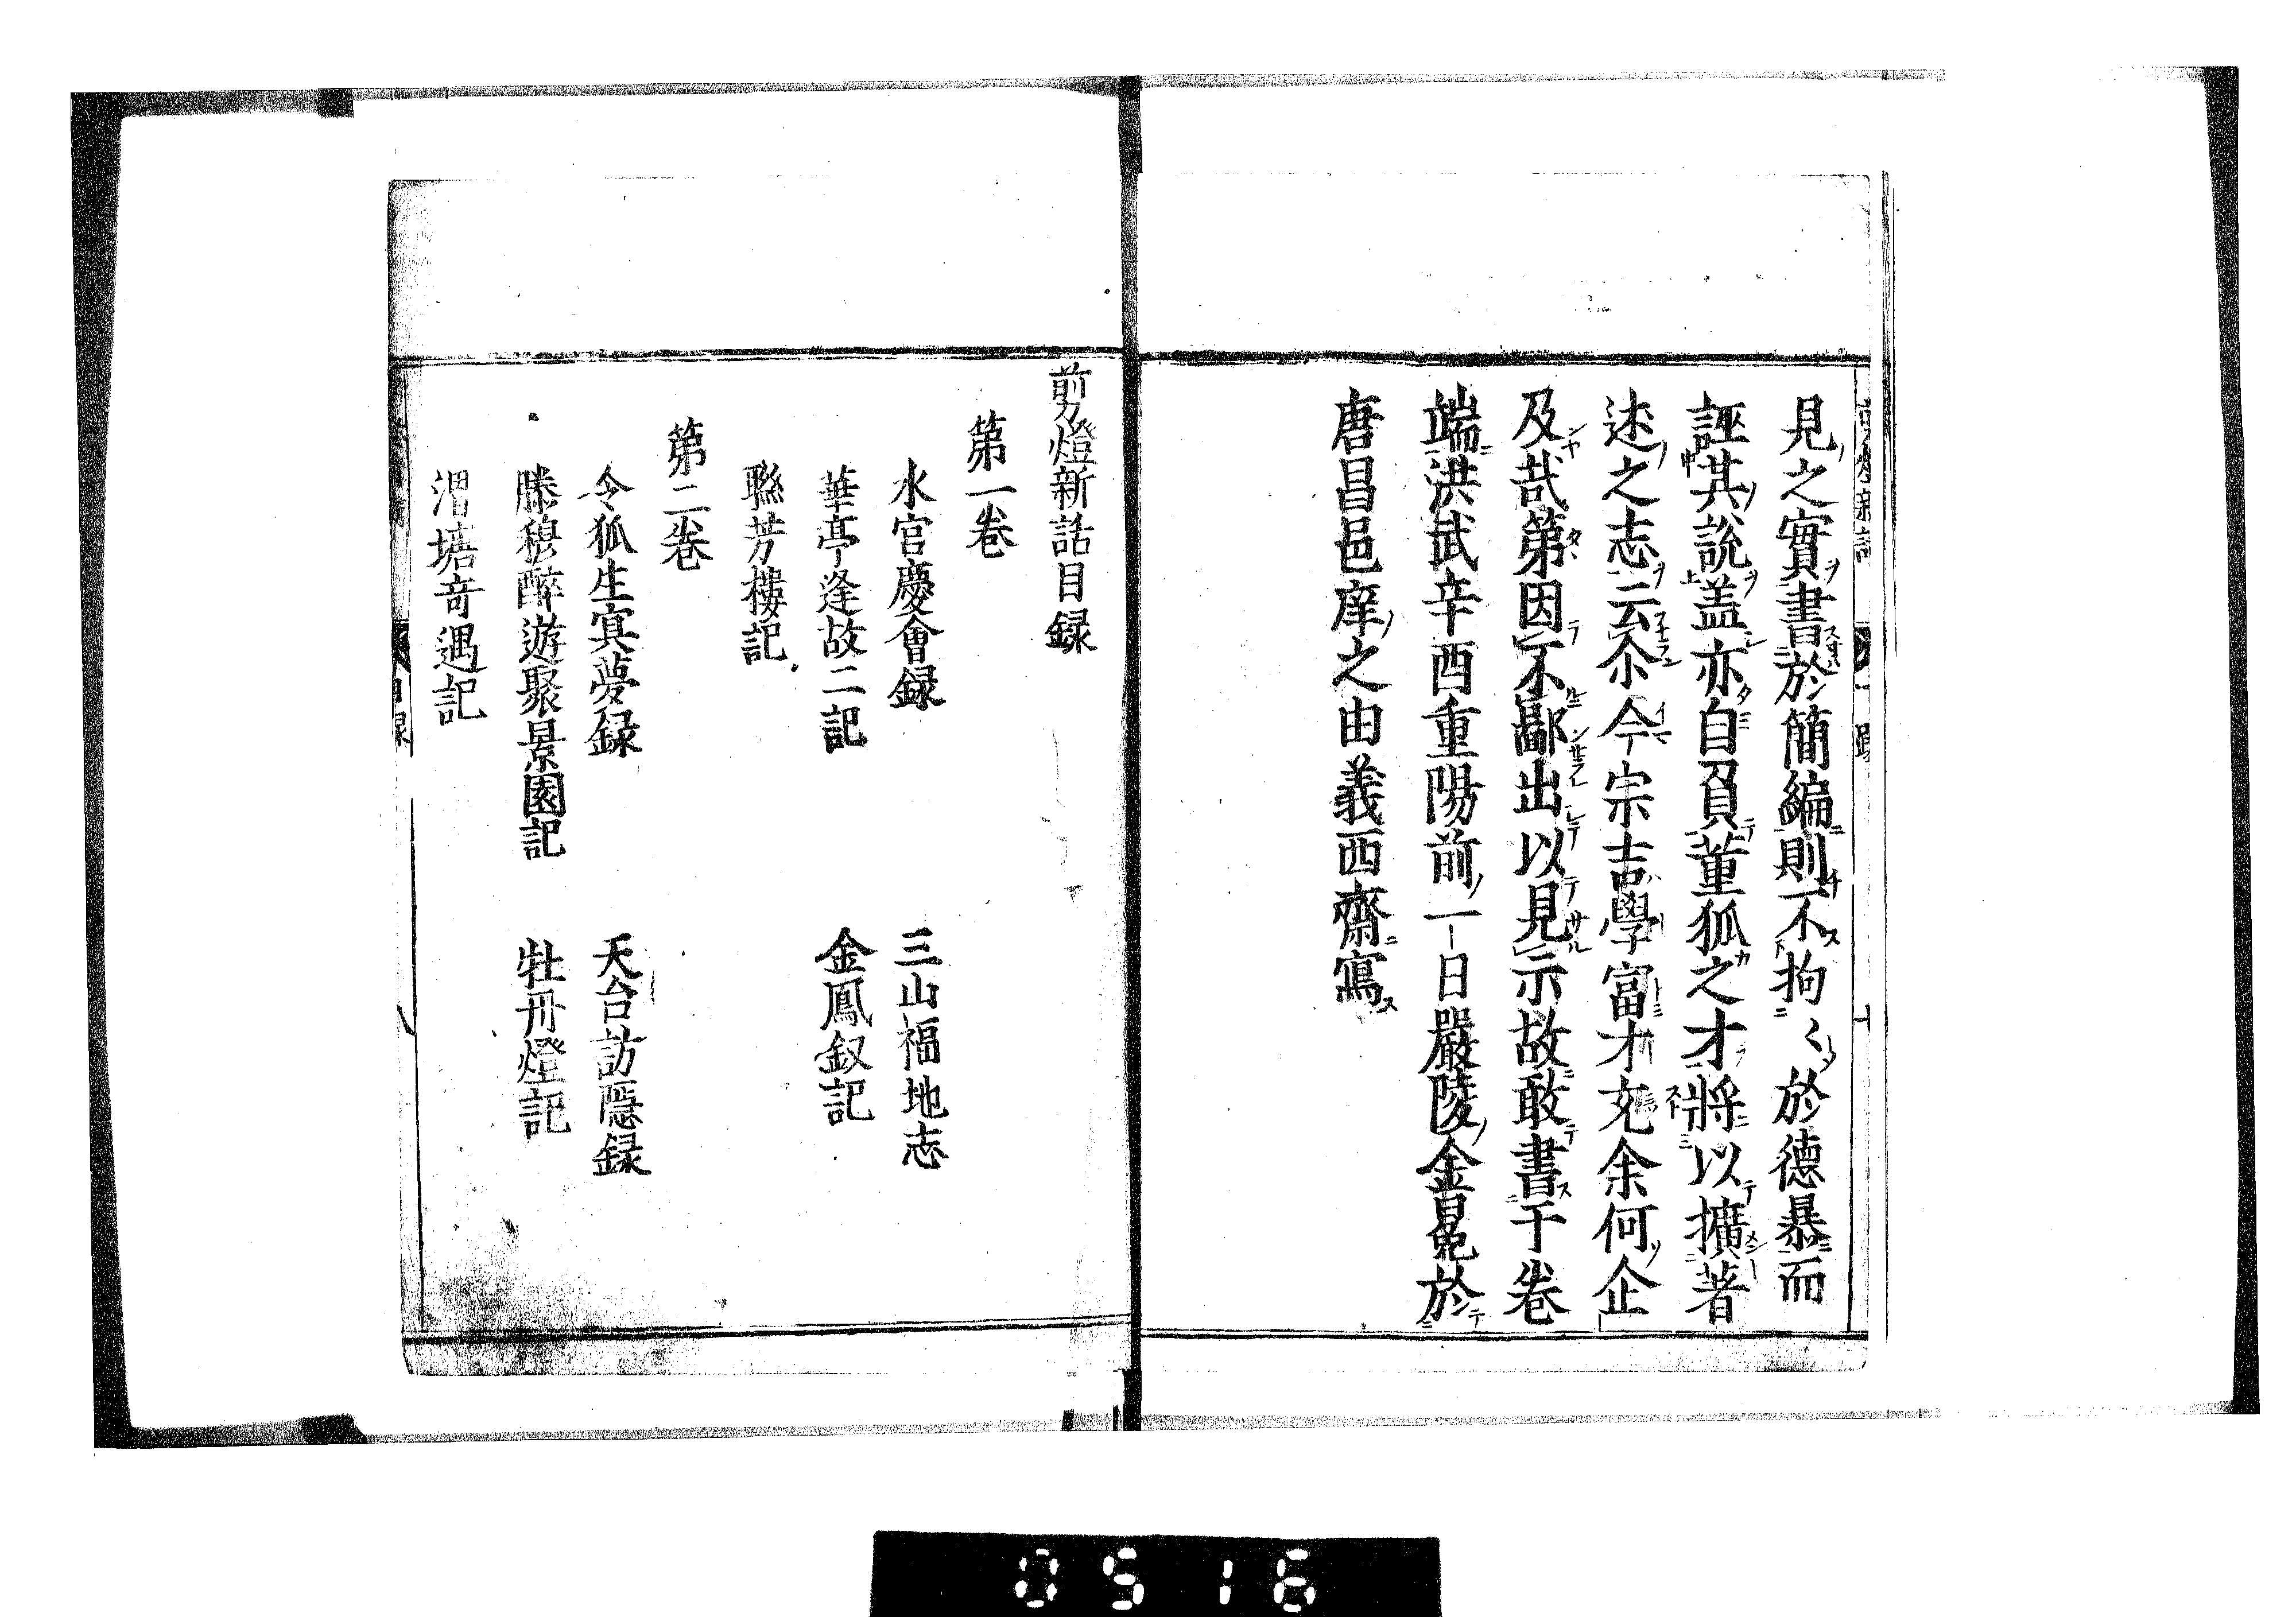 見之實書於簡編則不拘〻於德暴而
誣其說盖亦自負董狐之才將以擴著
述之志云尒今宗吉學富才充余何企
及哉第因不鄙出以見示故敢書于卷
端洪武辛酉重陽前一日嚴陵金冕於
唐昌邑庠之由義西齋寫
剪燈新話目録
第一卷
水宮慶會録
三山福地志
華亭逢故二記
金鳳釵記
聯芳樓記
第二卷
令狐生冥夢録
天台訪隱録
滕穆醉遊聚景園記
牡丹燈記
渭塘奇遇記
0516